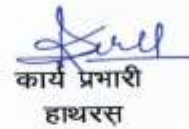 कार्य प्रभारी
हाथरस